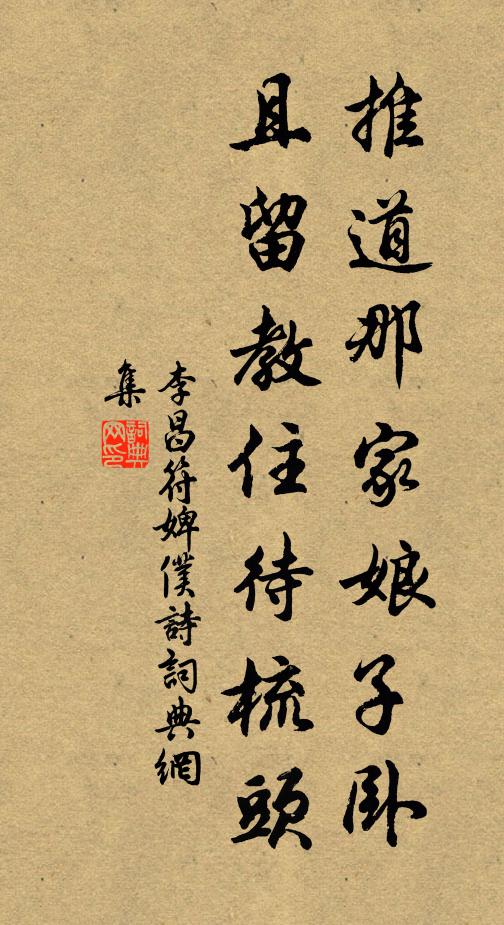 推道那家娘子卧
且留教住待梳頭
李昌符婢僕詩詞典網
集
詞典網印